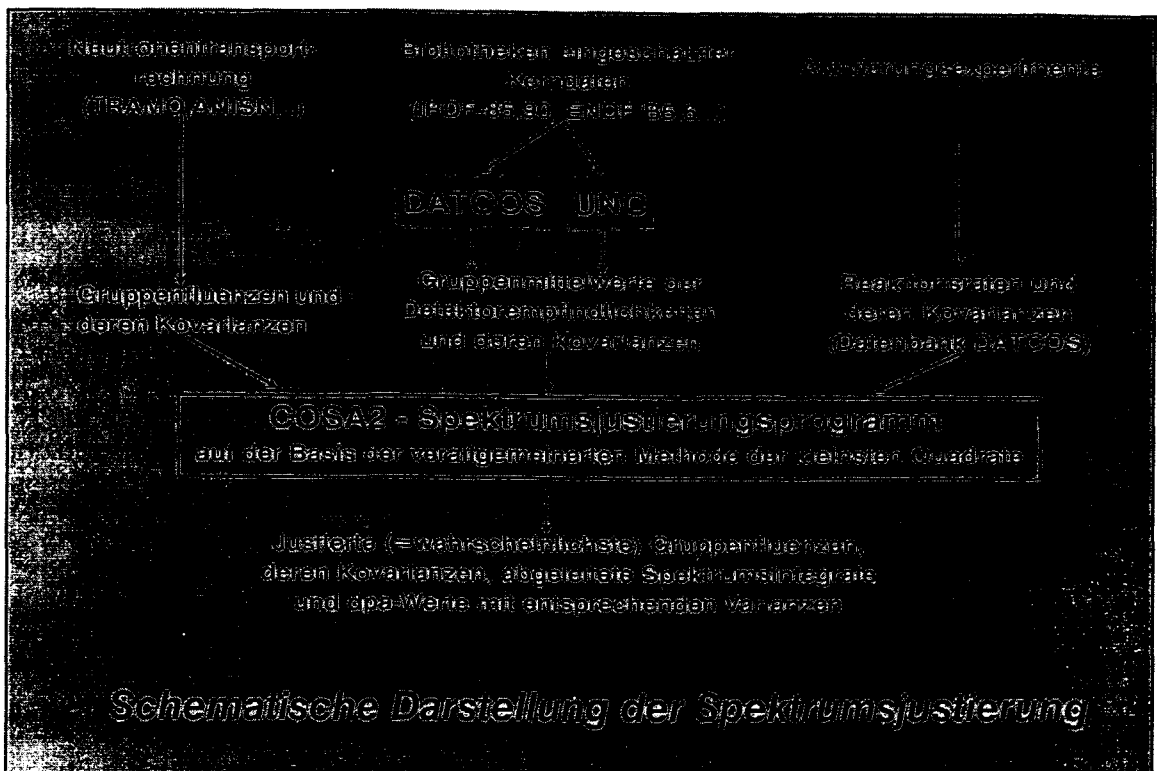 Neutronentransport-
rechnung
(TRAMO, ANISN,..)
Bibliotheken eingeschätzter
Kerndaten
(IRDF-85,90, ENDF
Aktivierungsexperimente
DATCOS UNC
Gruppenfluenzen und
deren Kovarianzen
Gruppenmittelwerte der
Detektorempfindlichkeiten
und deren Kovarianzen
Reaktionsraten und
deren Kovarianzen
(Datenbank DATCOS)
COSA2 - Spektrumsjustierungsprogramm
auf der Basis der verallgemeinerten Methode der kleinsten Quadrate
Justierte (=wahrscheinlichste) Gruppenfluenzen,
deren Kovarianzen, abgeleitete Spektrumsintegrale
und dpa-Werte mit entsprechenden Varianzen
Schematische Darstellung der Spektrumsjustierung